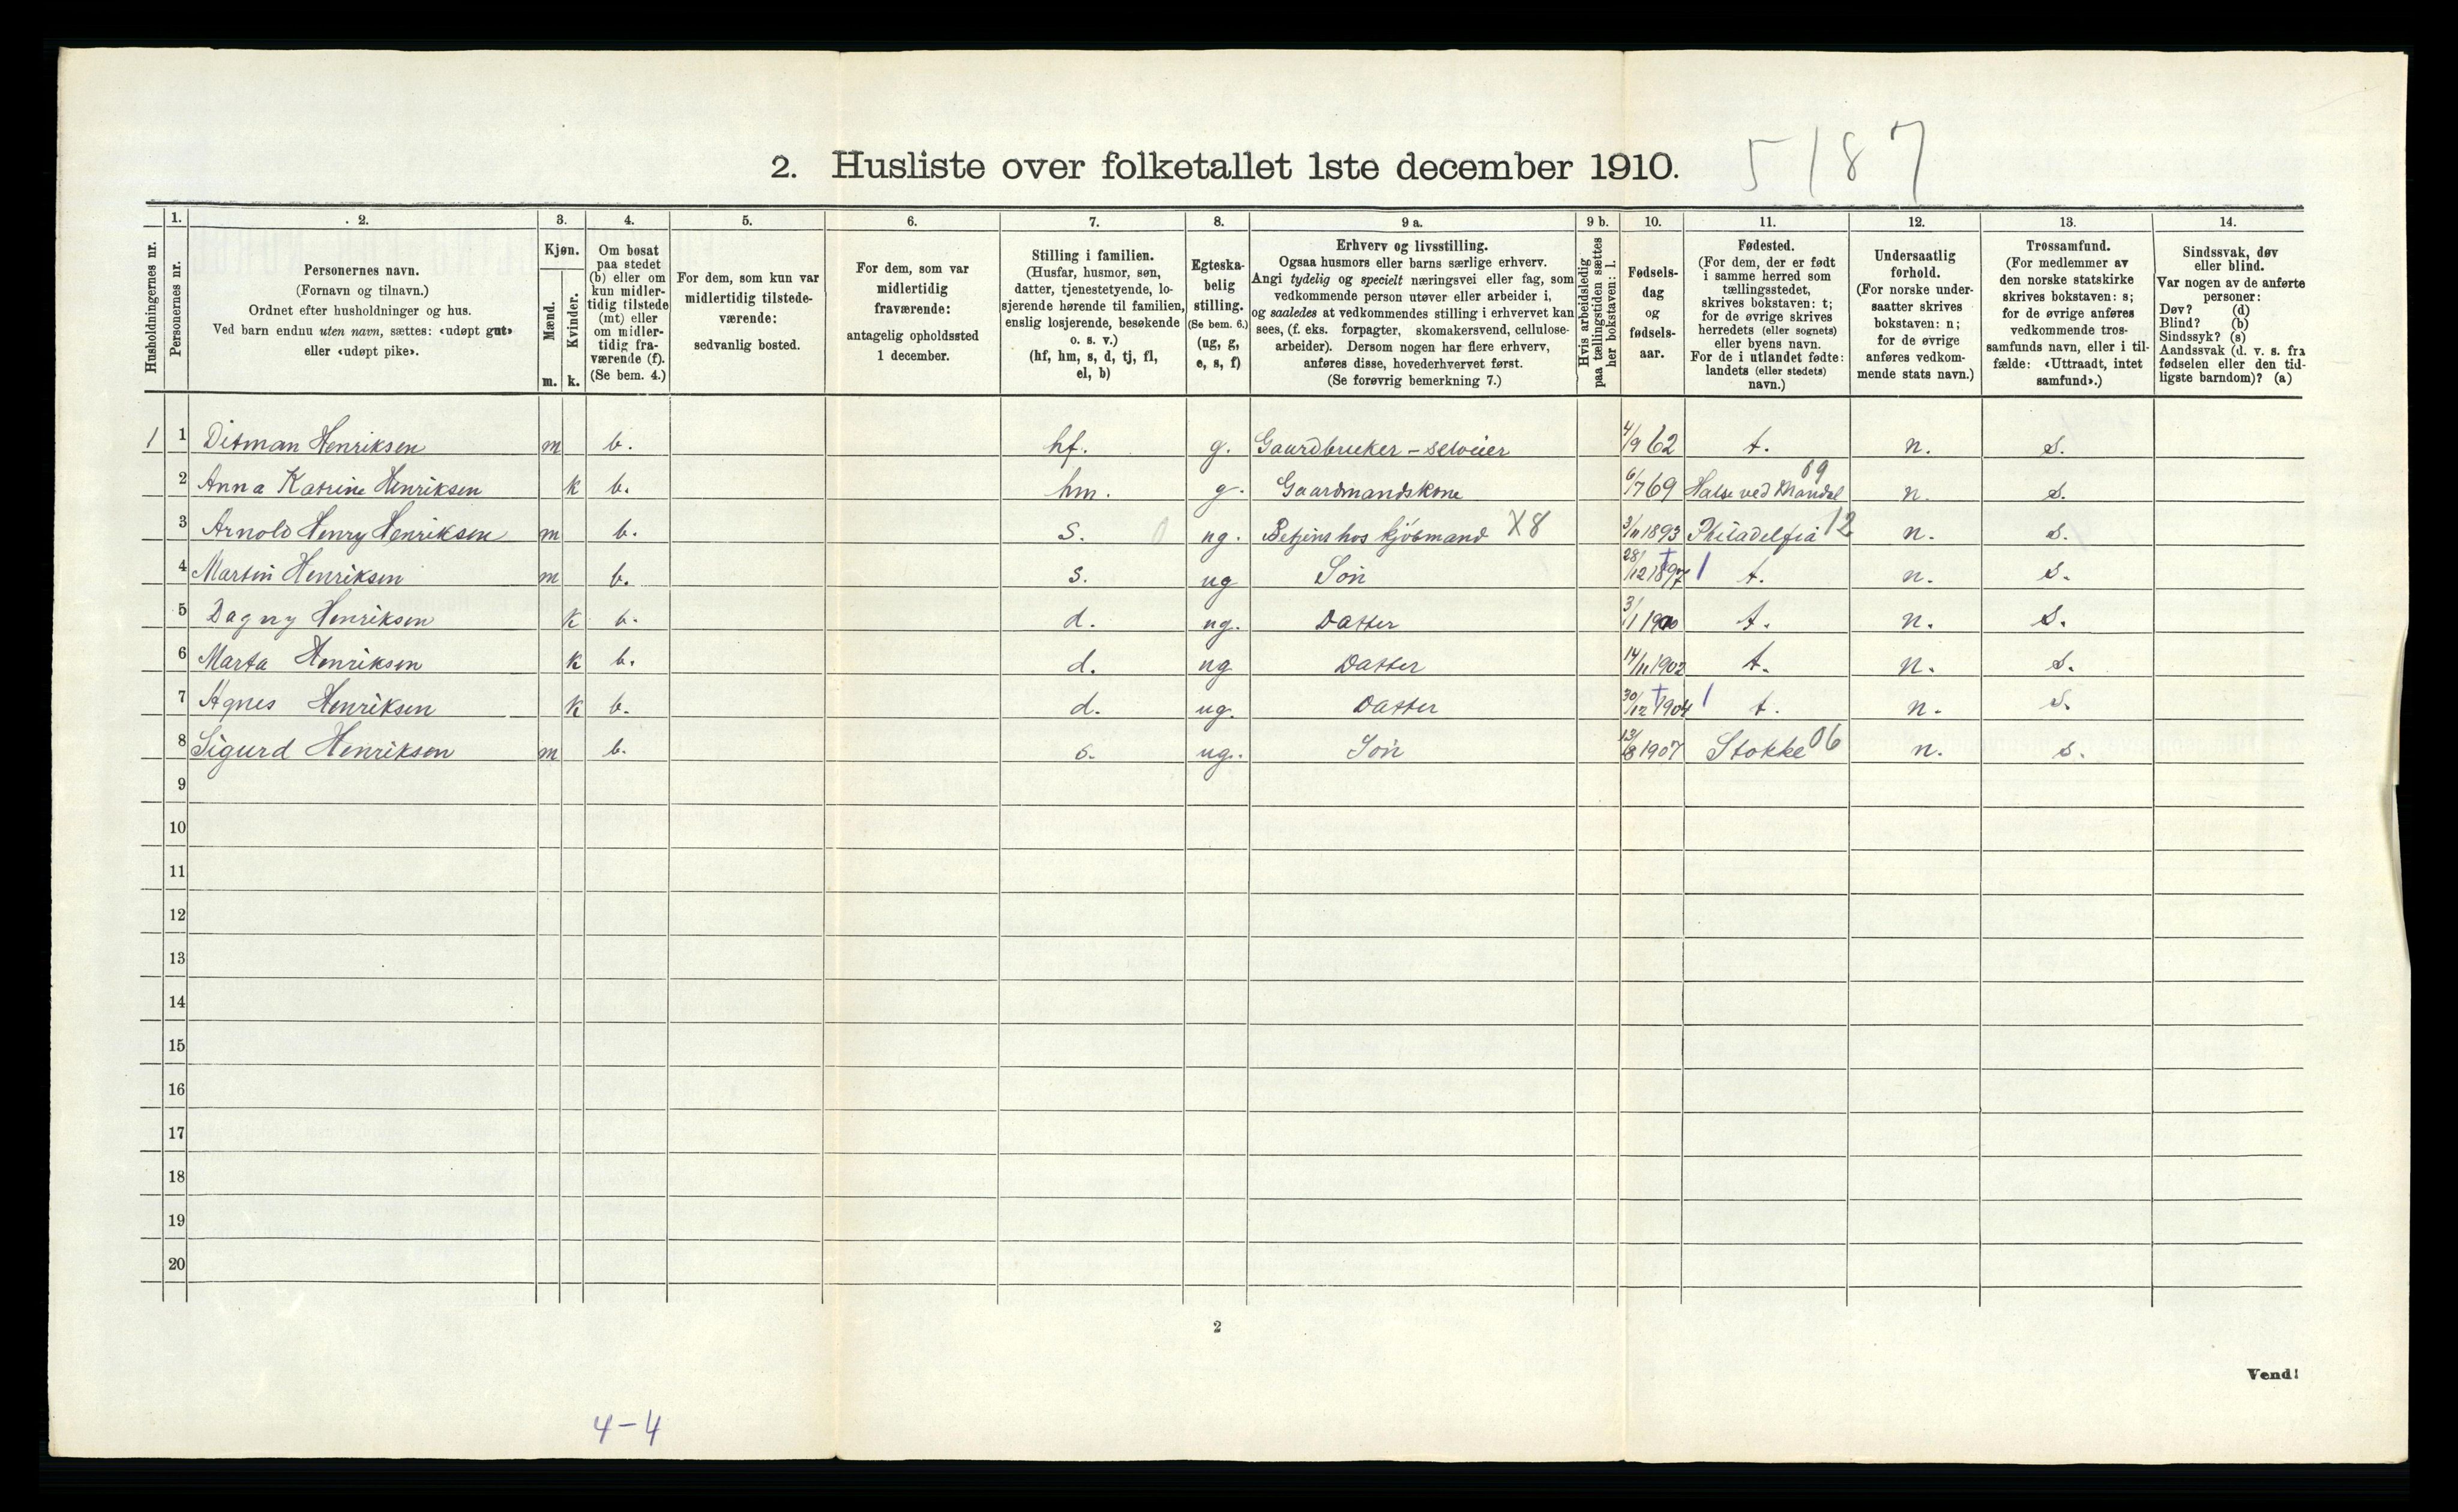 2. Husliste over folketallet 1ste december 1910.
5187
Husholdningernes nr.
1.
Personernes nr.
2.
Personernes navn.
(Fornavn og tilnavn.)
Ordnet efter husholdninger og hus.
Ved barn endnu uten navn, sættes: «udøpt gut»
eller «udøpt pike».
3.
Kjøn.
Mænd.
Kvinder.
m. k.
4.
Om bosat
paa stedet
(b) eller om
kun midler-
tidig tilstede
(mt) eller
om midler-
tidig fra-
værende (f).
(Se bem. 4.)
5.
For dem, som kun var
midlertidig tilstede-
værende:
sedvanlig bosted.
6.
For dem, som var
midlertidig
fraværende:
antagelig opholdssted
1 december.
7.
Stilling i familien.
(Husfar, husmor, søn,
datter, tjenestetyende, lo-
sjerende hørende til familien,
enslig losjerende, besøkende
o. s. v.)
(hf, hm, s, d, tj, fl,
el, b)
8.
Egteska-
belig
stilling.
(Se bem. 6.)
(ug, g,
e, s, f)
9 a.
Erhverv og livsstilling.
Ogsaa husmors eller barns særlige erhverv.
Angi tydelig og specielt næringsvei eller fag, som
vedkommende person utøver eller arbeider i,
og saaledes at vedkommendes stilling i erhvervet kan
sees, (f. eks. forpagter, skomakersvend, cellulose-
arbeider). Dersom nogen har flere erhverv,
anføres disse, hovederhvervet først.
(Se forøvrig bemerkning 7.)
9 b.
Hvis arbeidsledig
paa tællingstiden sættes
her bokstaven: l.
10.
Fødsels-
dag
og
fødsels-
aar.
11.
Fødested.
(For dem, der er født
i samme herred som
tællingsstedet,
skrives bokstaven: t;
for de øvrige skrives
herredets (eller sognets)
eller byens navn.
For de i utlandet fødte:
landets (eller stedets)
navn.)
12.
Undersaatlig
forhold.
(For norske under-
saatter skrives
bokstaven: n;
for de øvrige
anføres vedkom-
mende stats navn.)
13.
Trossamfund.
(For medlemmer av
den norske statskirke
skrives bokstaven: s;
for de øvrige anføres
vedkommende tros-
samfunds navn, eller i til-
fælde: «Uttraadt, intet
samfund».)
14.
Sindssvak, døv
eller blind.
Var nogen av de anførte
personer:
Døv? (d)
Blind? (b)
Sindssyk? (s)
Aandssvak (d. v. s. fra
fødselen eller den tid-
ligste barndom)? (a)
1 1 Ditman Henriksen m b. hf. g. Gaardbruker - selveier 4/9 62 t. n. s.
2 Anna Katrine Henriksen k b. hm. g. Gaardmandskone 6/7 69 Halse ved Mandal 09 n. s.
3 Arnold Henry Henriksen m b. s. 0 ug. Betjent hos kjøbmand X8 3/11 1893 Philadelfia 12 n. s.
4 Martin Henriksen m b. s. ug Søn 28/12 1897 t. n. s.
5 Dagny Henriksen k b. d. ug. Datter 3/1 1900 t. n. s.
6 Marta Henriksen k b. d. ug Datter 14/11 1902 t. n. s.
7 Agnes Henriksen k b. d. ug. Datter 30/12 1904 t. n. s.
8 Sigurd Henriksen m b. s. ug. Søn 13/8 1907 Stokke 06 n. s.
9
10
11
12
13
14
15
16
17
18
19
20
2
Vend!
4-4